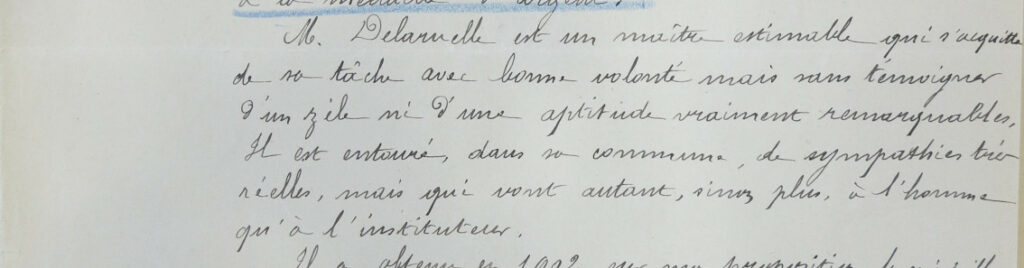 à la médaille d'argent.
M. Delaruelle est un maître estimable qui s'acquitte
de sa tâche avec bonne volonté mais sans témoigner
d'un zèle ni d'une aptitude vraiment remarquables.
Il est entouré, dans sa commune, de sympathies très
réelles, mais qui vont autant, sinon plus, à l'homme
qu'à l'instituteur.
Il a obtenu en 1902, sur ma proposition, la